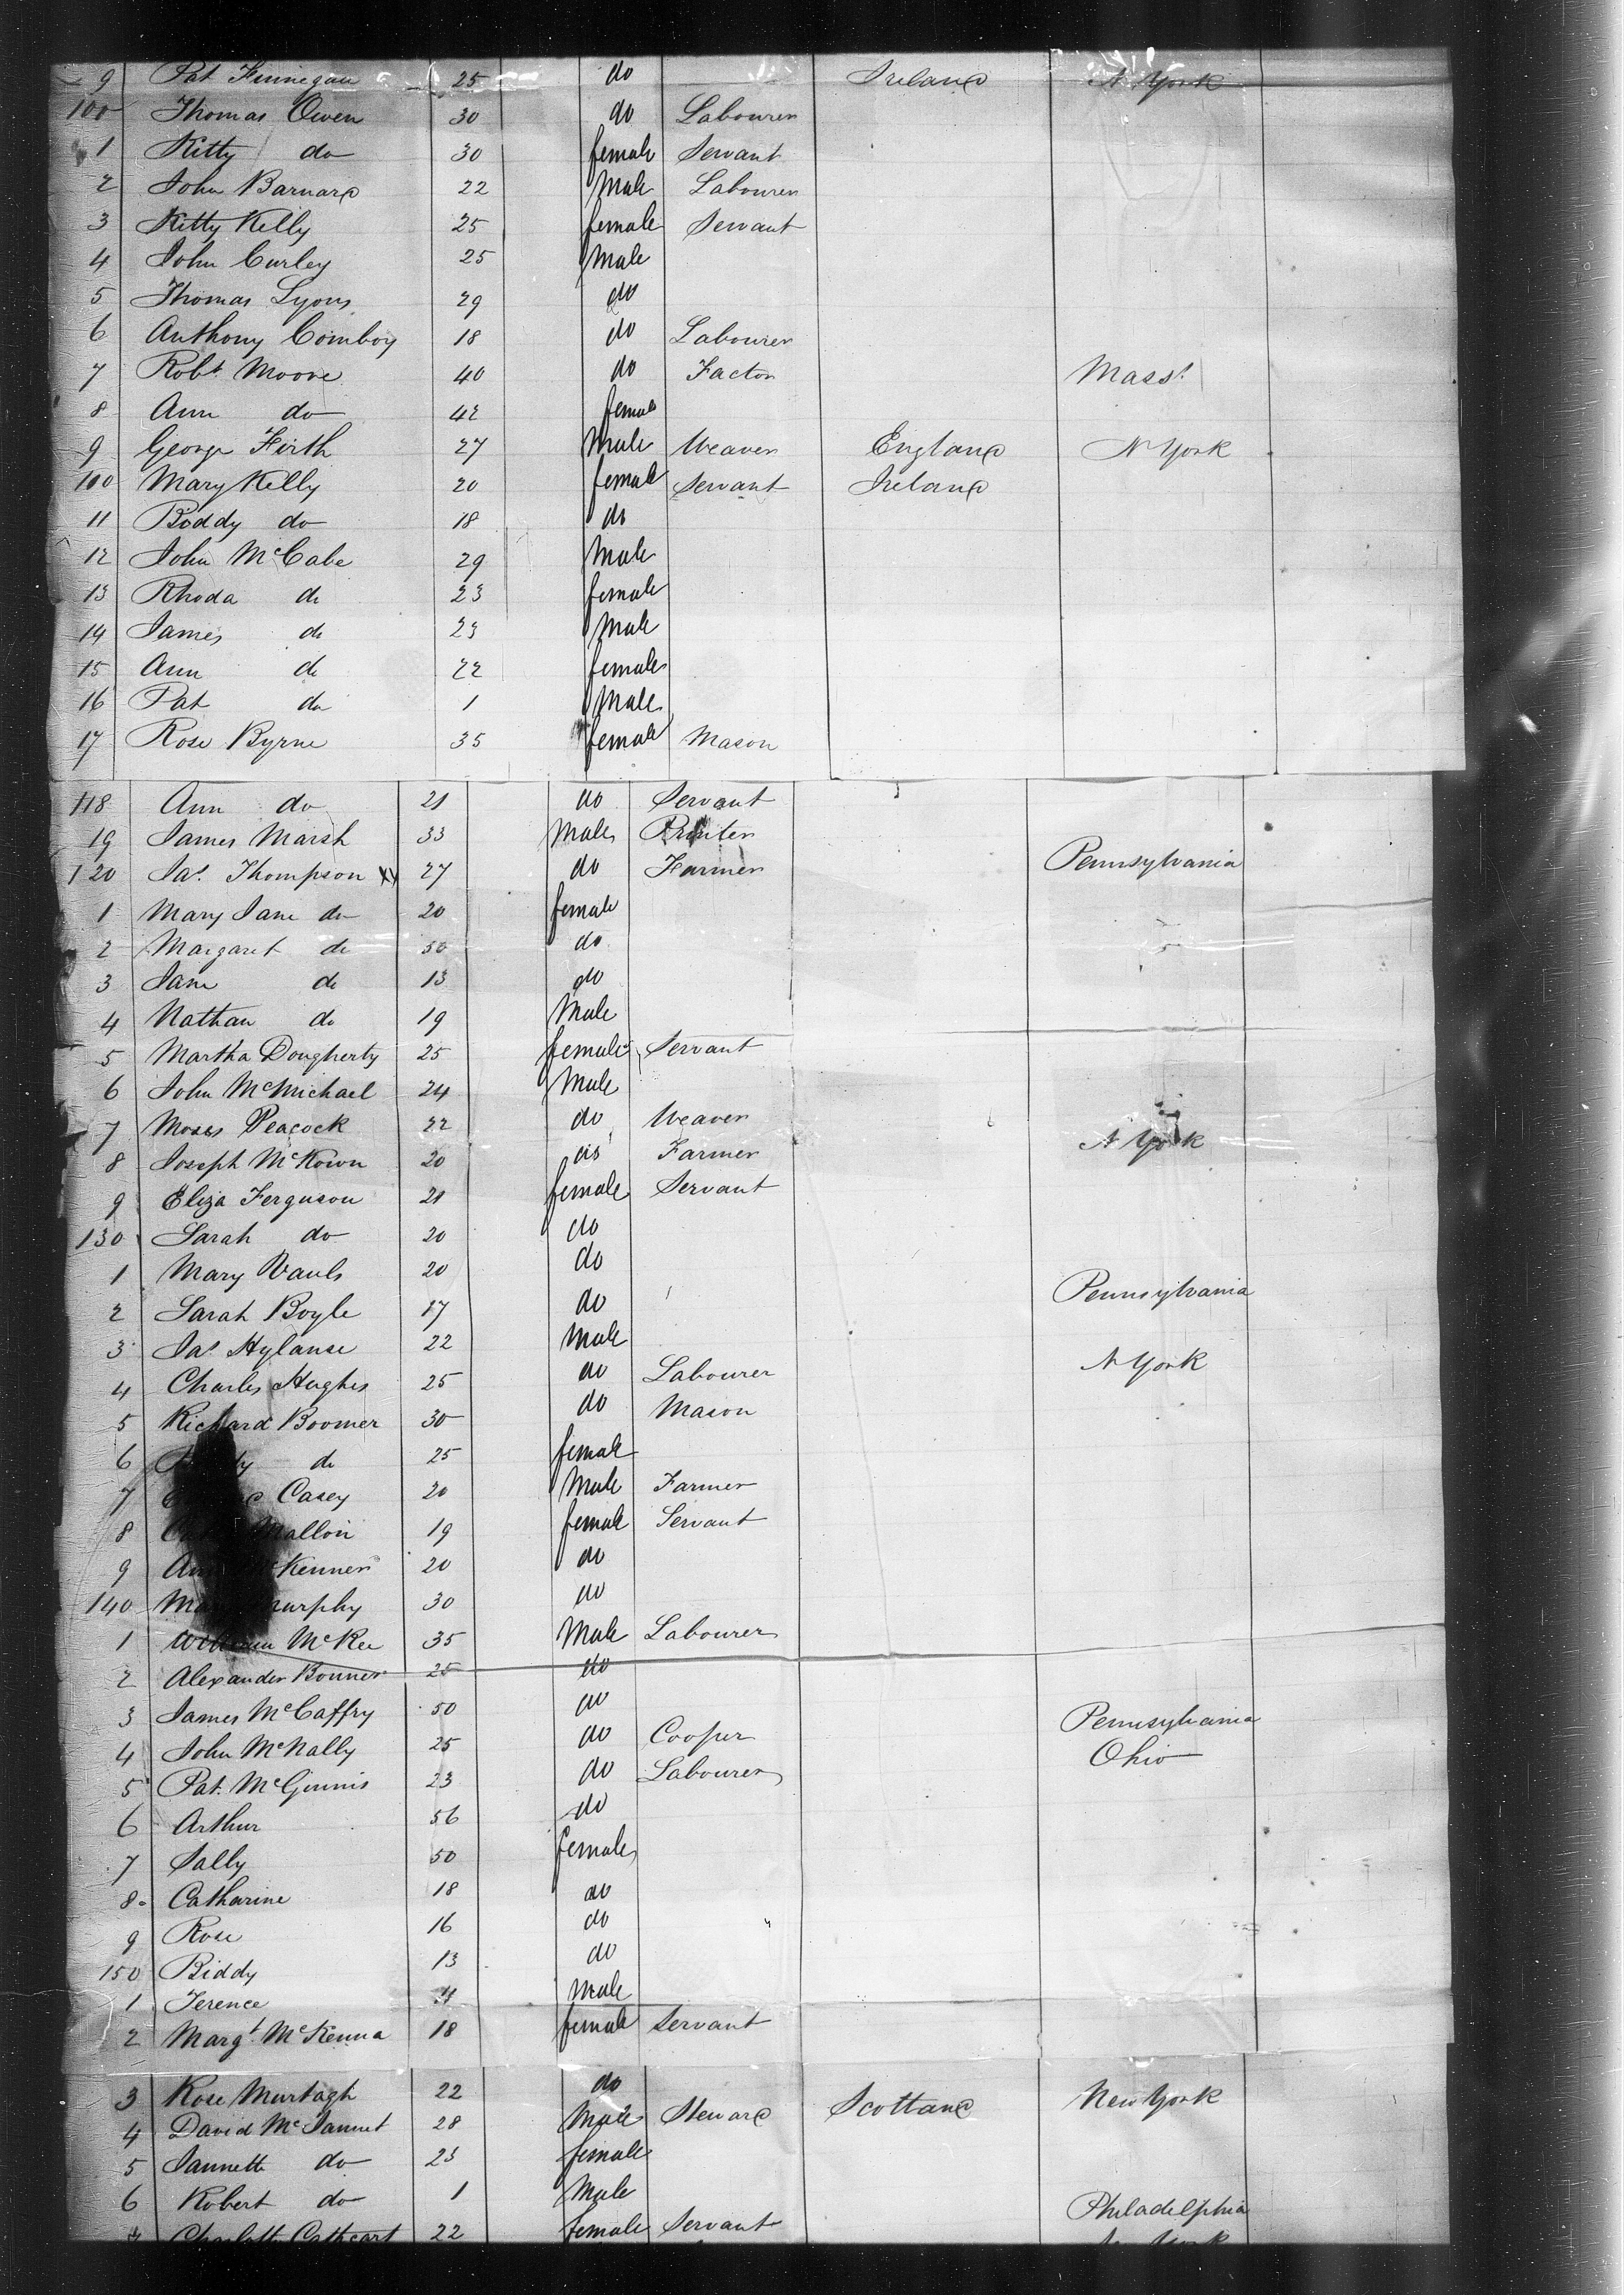 9 Pat Finnegan 25 do Ireland N York
100 Thomas Owen 30 do Labourer
1 Kitty do 30 female Servant
2 John Barnard 22 Male Labourer
3 Kitty Kelly 25 female Servant
4 John Curley 25 Male
5 Thomas Lyons 29 do
6 Anthony Comboy 18 do Labourer
7 Robt Moore 40 do Factor Masst
8 Ann do 42 female
9 George Firth 27 Male Weaver England N York
100 Mary Kelly 20 female Servant Ireland
11 Biddy do 18 do
12 John McCabe 29 Male
13 Rhoda do 23 female
14 James do 23 Male
15 Ann do 22 female
16 Pat do 1 Male
17 Rose Byrne 35 female Mason
118 Ann do 21 do Servant
19 James Marsh 33 Male Printer
120 Jas Thompson 27 do Farmer Pennsylvania
1 Mary Jane do 20 female
2 Margaret do do
3 Jane do 13 do
4 Nathan do 19 Male
5 Martha Dougherty 25 female Servant
6 John McMichael 24 Male
7 Moses Peacock 22 do Weaver N York
8 Joseph McKown 20 do Farmer
9 Eliza Ferguson 21 female Servant
130 Sarah do 20 do
1 Mary 20 do
2 Sarah Boyle 17 do Pennsylvania
3 Jas 22 Male
4 Charles Hughes 25 do Labourer N York
5 Richard Boomer 30 do Mason
6 do 25 female
7 Casey 20 Male Farmer
8 Mallon 19 female Servant
9 20 do
140 Mary Murphy 30 do
1 William McKee 35 Male Labourer
2 Alexander Bonner 25 do
3 James McCaffry 50 do Pennsylvania
4 John McNally 25 do Cooper Ohio
5 Pat McGinnis 23 do Labourer
6 Arthur 56 do
7 Sally 50 female
8 Catharine 18 do
9 Rose 16 do
150 Biddy 13 do
1 Terence Male
2 Margt McKenna 18 female Servant
3 Rose Murtagh 22 do
4 David McJannet 28 Male Steward Scotland New York
5 Jannette do 23 female
6 Robert do 1 Male
7 Charlotte Cathcart 22 female Servant Philadelphia